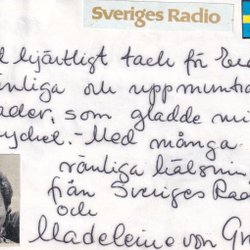 Sveriges Radio
hjärtligt tack för
vänliga och uppmuntra
rader, som gladde mi
mycket. - Med många
vänliga hälsnin
från Sveriges Rad
och
Madeleine von